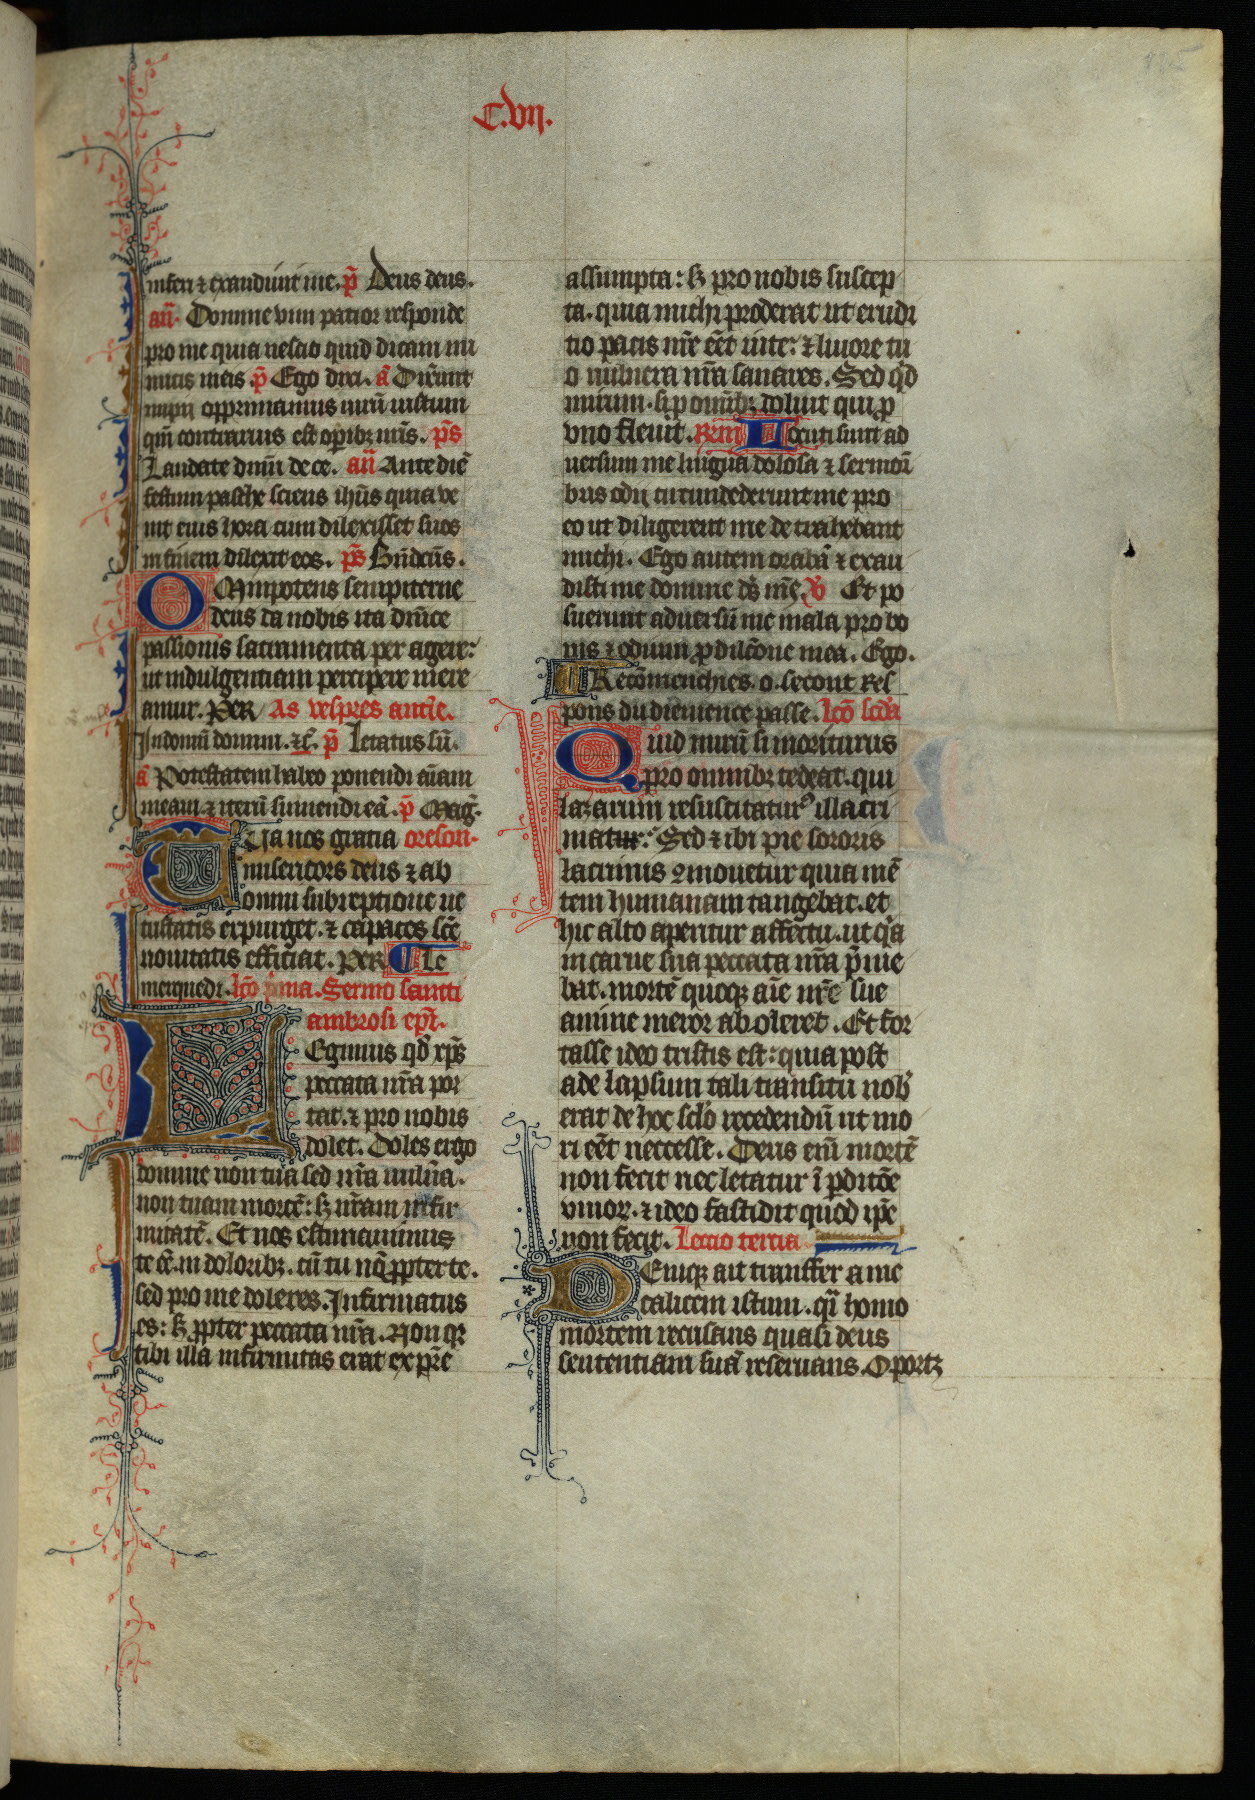 C.vij.
inferi ⁊ exaudiuit me. p̄s Deus deus.
an̄. Domine vim patior responde
pro me quia nescio quid dicam ini
micis meis. p̄s Ego dixi. a Dixerūt
impii opprimamus uirū iustum
qm̄ contrarius est op̄ibꝫ nr̄is. ps̄
Laudate dnm̄ de ce. an̄ Ante diē
festum pasche sciens ihūs quia ve
nit eius hora cum dilexisset suos
in finem dilexit eos. ps̄ Bn̄dcūs.
Omnipotens sempiterne
deus da nobis ita dn̄ice
passionis sacramenta per agere:
ut indulgentiam percipere mere
amur. PER As vespres antīe.
In domū domini. ⁊c̄. p̄ Letatus sū.
a Potestatem habeo ponendi aīam
meam ⁊ iterū sumendi eā. p̄ Maḡ.
Tua nos gratia oreson.
misericors deus ⁊ ab
omni subreptione ue
tustatis expurget. ⁊ capaces sc̄e
nouitatis efficiat. PER Le
merquedi. lc̄o prima. Sermo sancti
ambrosi ep̄i.
Legimus qd̄ xp̄s
peccata nr̄a por
tat. ⁊ pro nobis
dolet. Doles ergo
domine non tua sed nr̄a uuln̄a.
non tuam mortē: sꝫ nr̄am infir
mitatē. Et nos estimauimus
te ēē in doloribꝫ. cū tu nō ꝓpter te.
sed pro me doleres. Infirmatus
es: sꝫ ꝓpter peccata nr̄a. Non qr
tibi illa infirmitas erat ex pr̄e
assumpta: sꝫ pro nobis suscep
ta. quia michi proderat ut erudi
tio pacis nr̄e eēt in te: ⁊ liuore tu
o uulnera nr̄a sanares. Sed qd̄
mirum. si ꝓ omībꝫ doluit qui ꝓ
vno fleuit. Locuti sunt ad
uersum me lingua dolosa ⁊ sermoī
bus odii circumdederunt me pro
eo ut diligerent me detrahebant
michi. Ego autem orabā ⁊ exau
disti me domine ds̄ ms̄. V Et po
suerunt aduersū me mala pro bo
nis ⁊ odium ꝓ dilc̄one mea. Ego.
Recōmenchies. o. secont Res
pons du diemence passe. Lc̄o scd̄a
Quid mirū si moriturus
pro omnibꝫ tedeat. qui
lazarum resuscitaturꝰ illacri
matur: Sed ⁊ ibi pie sororis
lacrimis ꝯmouetur quia mē
tem humanam tangebat. et
hic alto aperitur affectu. ut qͥa
in carne sua peccata nr̄a p̄ime
bat. mortē quoqꝫ aīe nr̄e sue
anime meror aboleret. Et for
tasse ideo tristis est: quia post
ade lapsum tali transitu nob̄
erat de hoc sclō recedendū ut mo
ri eēt neccesse. Deus enī mortē
non fecit nec letatur ī ꝑditōe
viuor. ⁊ ideo fastidit quod ip̄e
non fecit. Leccio tercia
Deniqꝫ ait transfer a me
calicem istum. qͥ homo
mortem recusans quasi deus
sententiam suā reseruans. Oportꝫ